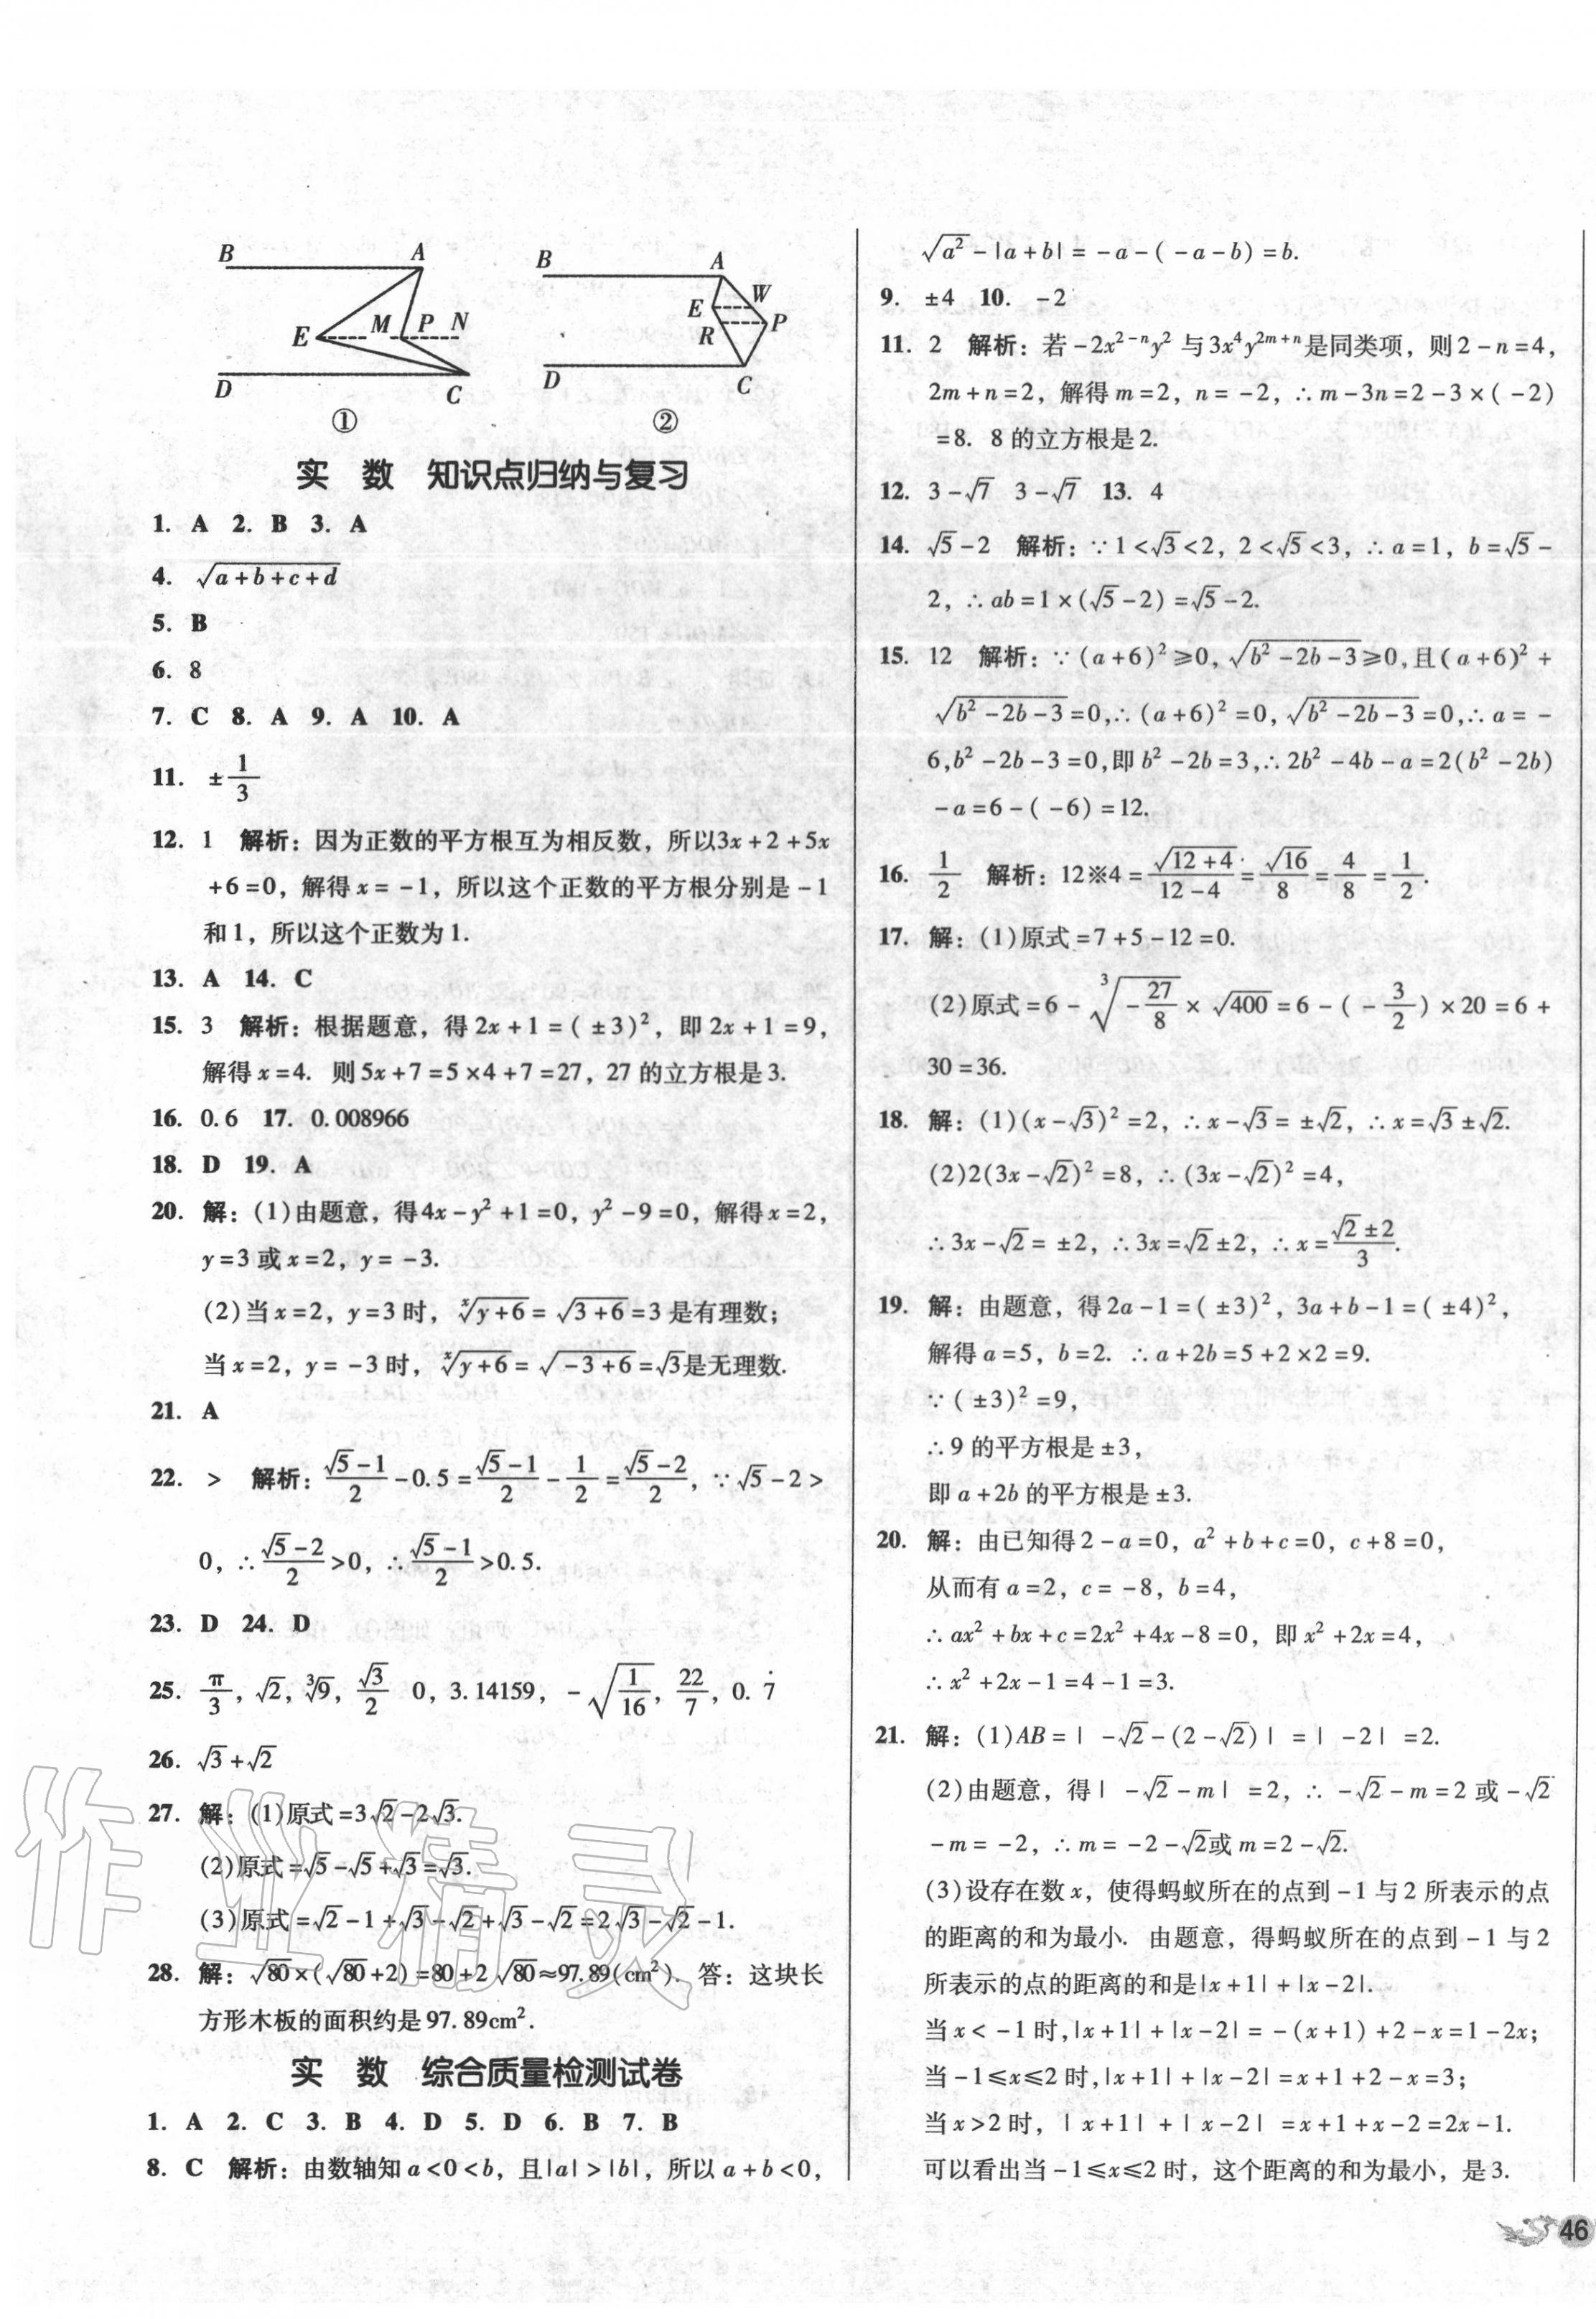 B A
E M P N
D C
①
B A
W
E
R P
D C
②
实 数 知识点归纳与复习
1. A 2. B 3. A
4. √(a+b+c+d)
5. B
6. 8
7. C 8. A 9. A 10. A
11. ±1/3
12. 1 解析：因为正数的平方根互为相反数，所以3x+2+5x
+6=0，解得x=-1，所以这个正数的平方根分别是-1
和1，所以这个正数为1.
13. A 14. C
15. 3 解析：根据题意，得2x+1=(±3)²，即2x+1=9，
解得x=4. 则5x+7=5×4+7=27，27的立方根是3.
16. 0.6 17. 0.008966
18. D 19. A
20. 解：(1)由题意，得4x-y²+1=0，y²-9=0，解得x=2，
y=3或x=2，y=-3.
(2)当x=2，y=3时，ˣ√(y+6)=√(3+6)=3是有理数；
当x=2，y=-3时，ˣ√(y+6)=√(-3+6)=√3是无理数.
21. A
22. > 解析：(√5-1)/2-0.5=(√5-1)/2-1/2=(√5-2)/2，∵√5-2>
0，∴(√5-2)/2>0，∴(√5-1)/2>0.5.
23. D 24. D
25. π/3，√2，³√9，√3/2 0，3.14159，-√(1/16)，22/7，0.7̇
26. √3+√2
27. 解：(1)原式=3√2-2√3.
(2)原式=√5-√5+√3=√3.
(3)原式=√2-1+√3-√2+√3-√2=2√3-√2-1.
28. 解：√80×(√80+2)=80+2√80≈97.89(cm²). 答：这块长
方形木板的面积约是97.89cm².
实 数 综合质量检测试卷
1. A 2. C 3. B 4. D 5. D 6. B 7. B
8. C 解析：由数轴知a<0<b，且|a|>|b|，所以a+b<0，
√(a²)-|a+b|=-a-(-a-b)=b.
9. ±4 10. -2
11. 2 解析：若-2x²⁻ⁿy²与3x⁴y²ᵐ⁺ⁿ是同类项，则2-n=4，
2m+n=2，解得m=2，n=-2，∴m-3n=2-3×(-2)
=8. 8的立方根是2.
12. 3-√7 3-√7 13. 4
14. √5-2 解析：∵1<√3<2，2<√5<3，∴a=1，b=√5-
2，∴ab=1×(√5-2)=√5-2.
15. 12 解析：∵(a+6)²≥0，√(b²-2b-3)≥0，且(a+6)²+
√(b²-2b-3)=0，∴(a+6)²=0，√(b²-2b-3)=0，∴a=-
6，b²-2b-3=0，即b²-2b=3，∴2b²-4b-a=2(b²-2b)
-a=6-(-6)=12.
16. 1/2 解析：12※4=√(12+4)/(12-4)=√16/8=4/8=1/2.
17. 解：(1)原式=7+5-12=0.
(2)原式=6-³√(-27/8)×√400=6-(-3/2)×20=6+
30=36.
18. 解：(1)(x-√3)²=2，∴x-√3=±√2，∴x=√3±√2.
(2)2(3x-√2)²=8，∴(3x-√2)²=4，
∴3x-√2=±2，∴3x=√2±2，∴x=(√2±2)/3.
19. 解：由题意，得2a-1=(±3)²，3a+b-1=(±4)²，
解得a=5，b=2. ∴a+2b=5+2×2=9.
∵(±3)²=9，
∴9的平方根是±3，
即a+2b的平方根是±3.
20. 解：由已知得2-a=0，a²+b+c=0，c+8=0，
从而有a=2，c=-8，b=4，
∴ax²+bx+c=2x²+4x-8=0，即x²+2x=4，
∴x²+2x-1=4-1=3.
21. 解：(1)AB=|-√2-(2-√2)|=|-2|=2.
(2)由题意，得|-√2-m|=2，∴-√2-m=2或-√2
-m=-2，∴m=-2-√2或m=2-√2.
(3)设存在数x，使得蚂蚁所在的点到-1与2所表示的点
的距离的和为最小. 由题意，得蚂蚁所在的点到-1与2
所表示的点的距离的和是|x+1|+|x-2|.
当x<-1时，|x+1|+|x-2|=-(x+1)+2-x=1-2x；
当-1≤x≤2时，|x+1|+|x-2|=x+1+2-x=3；
当x>2时，|x+1|+|x-2|=x+1+x-2=2x-1.
可以看出当-1≤x≤2时，这个距离的和为最小，是3.
46
作业精灵